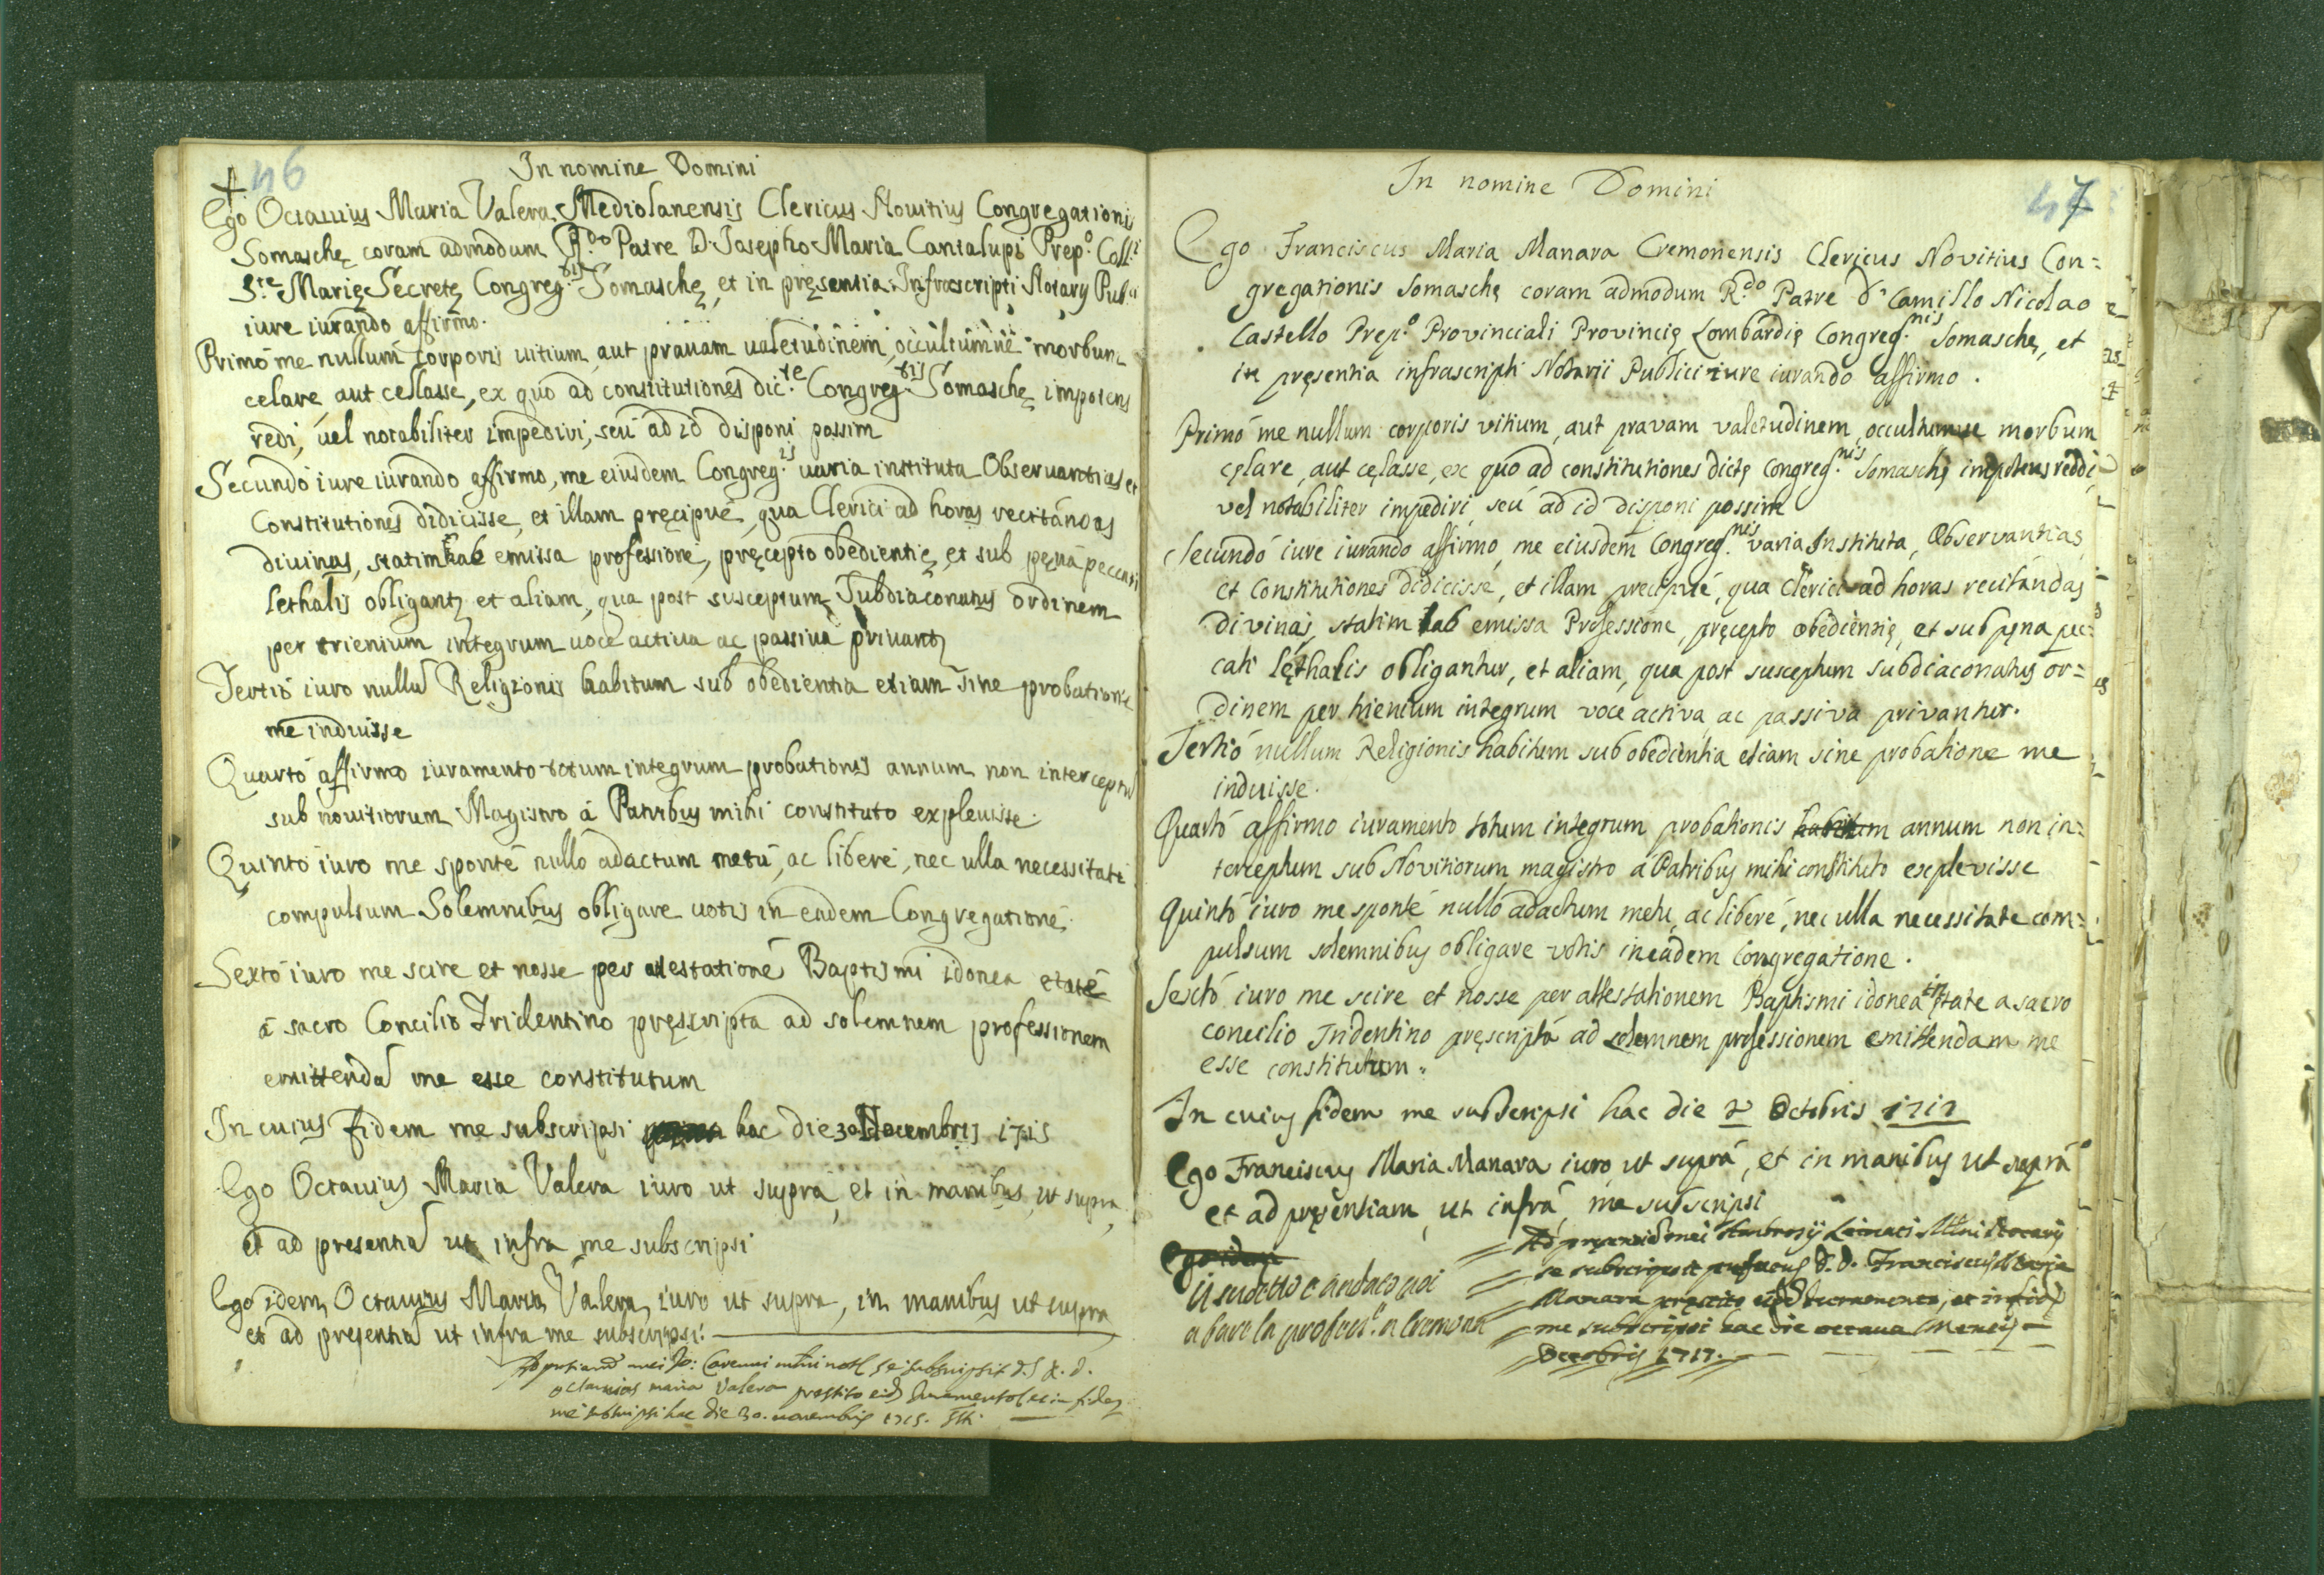 46
In nomine Domini
Ego Octauius Maria Valera Mediolanensis Clericus Nouitius Congregationis
Somaschę coram admodum R.do Patre D. Josepho Maria Cantalupo Prep.o Coll.i
S.te Marię Secretę Congreg.nis Somaschę, et in pręsentia Infrascripti Notarij Pub.ci
iure iurando affirmo.
Primò me nullum corporis uitium, aut prauam ualetudinem, occultumuè morbum
celare, aut cellasse, ex quo ad constitutiones dic.te Congreg.nis Somaschę impotens
redi, uel notabiliter impediri, seù ad id disponi possim
Secundò iure iurando affirmo, me eiusdem Congreg.is uaria instituta Obseruantias et
Constitutiones didicisse, et illam pręcipuè, qua Clerici ad horas recitandas
diuinas, statim hab emissa professione, pręcepto obedientię, et sub pęna peccati
lethalis obligantz et aliam, qua post susceptum Subdiaconatus ordinem
per trienium integrum uoce actiua ac passiua priuantz
Tertiò iuro nullū Religionis habitum sub obedientia etiam sine probatione
me induisse
Quartò affirmo iuramento totum integrum probationis annum non interceptū
sub nouitiorum Magistro à Patribus mihi constituto expleuisse.
Quintò iuro me spontè nullò adactum metù, ac liberè, nec ulla necessitate
compulsum Solemnibus obligare uotis in eadem Congregatione.
Sextò iuro me scire et nosse per atestationē Baptismi idonea etatē
à sacro Concilio Tridentino pręscripta ad solemnem professionem
emittendā me esse constitutum
In cuius fidem me subscripsi hac die 30 Nouembris 1715
Ego Octauius Maria Valera iuro ut supra, et in manibus ut supra,
et ad presentiā ut infra me subscripsi
Ego idem Octauius Maria Valera iuro ut supra, in manibus ut supra
et ad presentiā ut infra me subscripsi.
mei Jo: se subscripsit
octauius maria Valera prestito eid Juramento et in fidez
me subscripsi hac die 30. nouembris 1715.
47
In nomine Domini
Ego Franciscus Maria Manara Cremonensis Clericus Novitius Con=
gregationis Somaschę coram admodum R.do Patre D. Camillo Nicolao
Castello Prep.o Provinciali Provincię Lombardię Congreg.nis Somaschę, et
in pręsentia infrascripti Notarii Publici iure iurando affirmo.
Primò me nullum corporis vitium, aut pravam valetudinem, occultumue morbum
cęlare, aut cęlasse, ex quo ad constitutiones dictę Congreg.nis Somaschę impotens reddi,
vel notabiliter impediri, seù ad id disponi possim
Secundò iure iurando affirmo, me eiusdem Congreg.nis varia Instituta, Observantias,
et Constitutiones didicisse, et illam precipuè, qua Clerici ad horas recitandas
divinas, statim hab emissa Professione, pręcepto obedientię, et sub pęna pec=
cati lęthalis obligantur, et aliam, qua post susceptum subdiaconatus or=
dinem per trienium integrum voce activa, ac passiva privantur.
Tertiò nullum Religionis habitum sub obedientia etiam sine probatione me
induisse.
Quartò affirmo iuramento totum integrum probationis habitum annum non in=
terceptum sub Novitiorum magistro à Patribus mihi constituto explevisse
Quintò iuro me spontè nullò adactum metu, ac liberè, nec ulla necessitate com=
pulsum solemnibus obligare votis in eadem Congregatione.
Sextò iuro me scire et nosse per attestationem Baptismi idonea in ętate a sacro
concilio Tridentino pręscripta ad solemnem professionem emittendam me
esse constitutum.
In cuius fidem me subscripsi hac die 8 Octobris 1717
Ego Franciscus Maria Manara iuro, ut suprà, et in manibus ut suprà
et ad pręsentiam, ut infrà me subscripsi
Ego idem
Il sudetto è andato poi
a fare la profess.e a Cremona
Ad pręsentiā mei Ambrosij Leinati Notarij
se subscripsit D. D. Franciscus Maria
Manara pręstito Iuramento, et in fidē
me subscripsi hac die octaua Mensis
Octobris 1717.